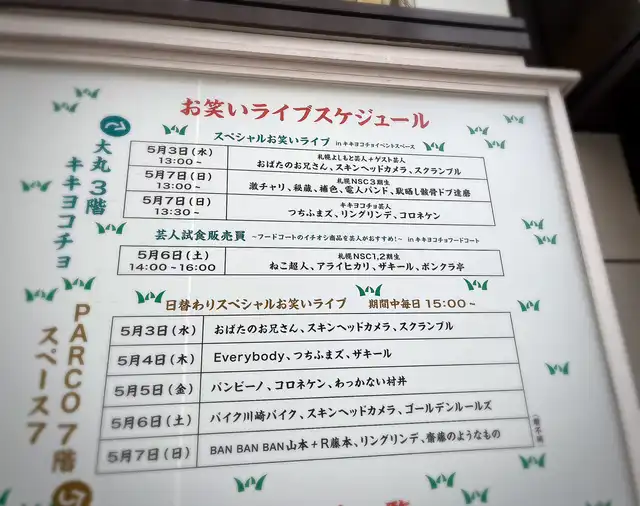 お笑いライブスケジュール
大丸3階
キキヨコチョ
スペシャルお笑いライブ in キキヨコチョイベントスペース
5月3日(水)
13:00~
札幌よしもと芸人+ゲスト芸人
おばたのお兄さん、スキンヘッドカメラ、スクランブル
5月7日(日)
13:00~
札幌NSC3期生
激チャリ、秘蔵、補色、電人バンド、駄晒し骸骨ドブ達磨
5月7日(日)
13:30~
キキヨコチョ芸人
つちふまズ、リングリンデ、コロネケン
芸人試食販売員 ~フードコートのイチオシ商品を芸人がおすすめ!~ in キキヨコチョフードコート
5月6日(土)
14:00~16:00
札幌NSC1,2期生
ねこ超人、アライヒカリ、ザキール、ポンクラ亭
PARCO 7階
スペース7
日替わりスペシャルお笑いライブ 期間中毎日15:00~
5月3日(水) おばたのお兄さん、スキンヘッドカメラ、スクランブル
5月4日(木) Everybody、つちふまズ、ザキール
5月5日(金) バンビーノ、コロネケン、わっかない村井
5月6日(土) バイク川崎バイク、スキンヘッドカメラ、ゴールデンルールズ
5月7日(日) BAN BAN BAN山本+R藤本、リングリンデ、齋藤のようなもの